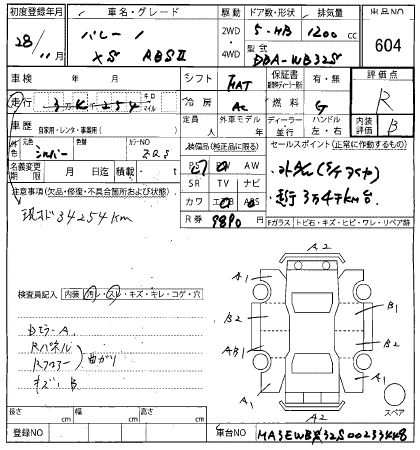 初度登録年月 車名・グレード 駆動 ドア数・形状 排気量 出品NO
28/11月 バレーノ 2WD・4WD 5-HB 1200cc 604
XS ABSⅡ 型式 DBA-WB32S
車検 年 月 シフト FAT 保証書 有・無 評価点
走行 キロ マイル 冷房 AC 燃料 G R
車歴 自家用・レンタ・事業用( ) 定員 人 外車モデル 年 ディーラー 並行 ハンドル 左・右 内装評価 B
色 元色 シルバー カラーNO Z2S 装備品(純正品に限る) セールスポイント(正常に作動するもの)
名義変更期限 月 日迄 積載 t PS PW AW
SR TV ナビ
注意事項(欠品・修復・不具合箇所および状態) カワ エアB ABS 走行 3万4千km台
現メーター 34254km R券 9890 Fガラス トビ石・キズ・ヒビ・ワレ・リペア跡
A2
A1 A1
検査員記入 内装 汚レ・スレ・キズ・キレ・コゲ・穴
B2 B1
Dミラー A
Rパネル
Rフロアー 曲がり
AB1 B2
キズ、B
A1 A1
A2 スペア
長さ cm 幅 cm 高さ cm
登録NO 車台NO MA3EWB32S00233448